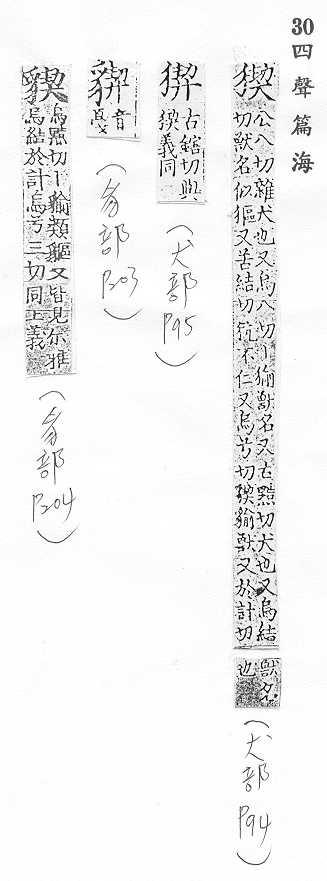 30 四聲篇海
猰 公八切雜犬也又烏八切丨㺄獸名又古黠切犬也又烏結
切獸名似貙又苦結切 不仁又烏兮切猰貐獸又於計切
獸名
也
(犬部 P94)
古鎋切與
猰義同
(犬部 P95)
音
戛
(豸部 P203)
烏黠切丨貐類貙又皆見尔雅
烏結於計烏兮三切同上義
(豸部 P204)